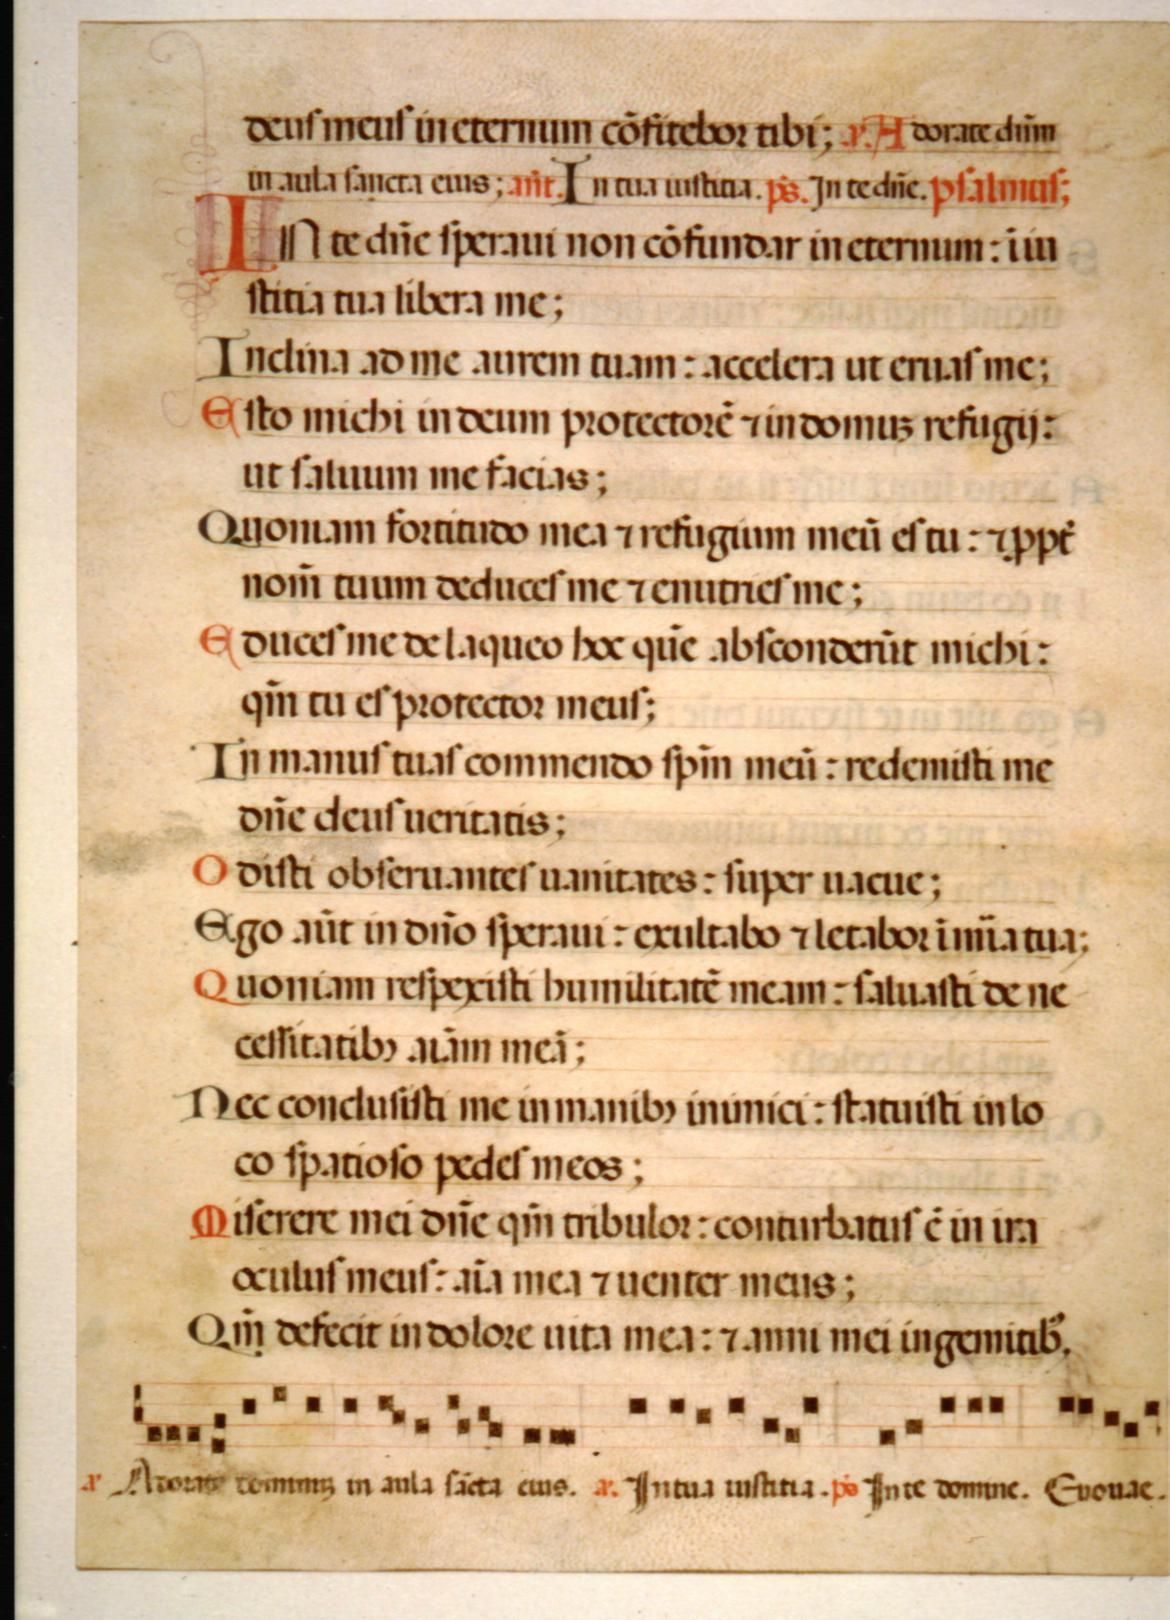 deus meus in eternum cõfitebor tibi; a. Adorate dñm
in aula sancta eius; añt. In tua iustitia. ps. In te dñe. psalmus;
IN te dñe speraui non cõfundar in eternum: ĩ iu
stitia tua libera me;
Inclina ad me aurem tuam: accelera ut eruas me;
Esto michi in deum protectorẽ ⁊ in domuꝫ refugij:
ut saluum me facias;
Quoniam fortitudo mea ⁊ refugium meũ es tu: ⁊ ꝓpt̃
nom̃ tuum deduces me ⁊ enutries me;
Educes me de laqueo hoc quẽ absconderũt michi:
qm̃ tu es protector meus;
In manus tuas commendo spm̃ meũ: redemisti me
dñe deus ueritatis;
Odisti obseruantes uanitates: super uacue;
Ego aũt in dño speraui: exultabo ⁊ letabor ĩ mĩa tua;
Quoniam respexisti humilitatẽ meam: saluasti de ne
cessitatibꝰ aĩam meã;
Nec conclusisti me in manibꝰ inimici: statuisti in lo
co spatioso pedes meos;
Miserere mei dñe qm̃ tribulor: conturbatus ẽ in ira
oculus meus: aĩa mea ⁊ uenter meus;
Qm̃ defecit in dolore uita mea: ⁊ anni mei in gemitib.
a Adorate dominuꝫ in aula sãcta eius. a. In tua iustitia. ps In te domine. Euouae.